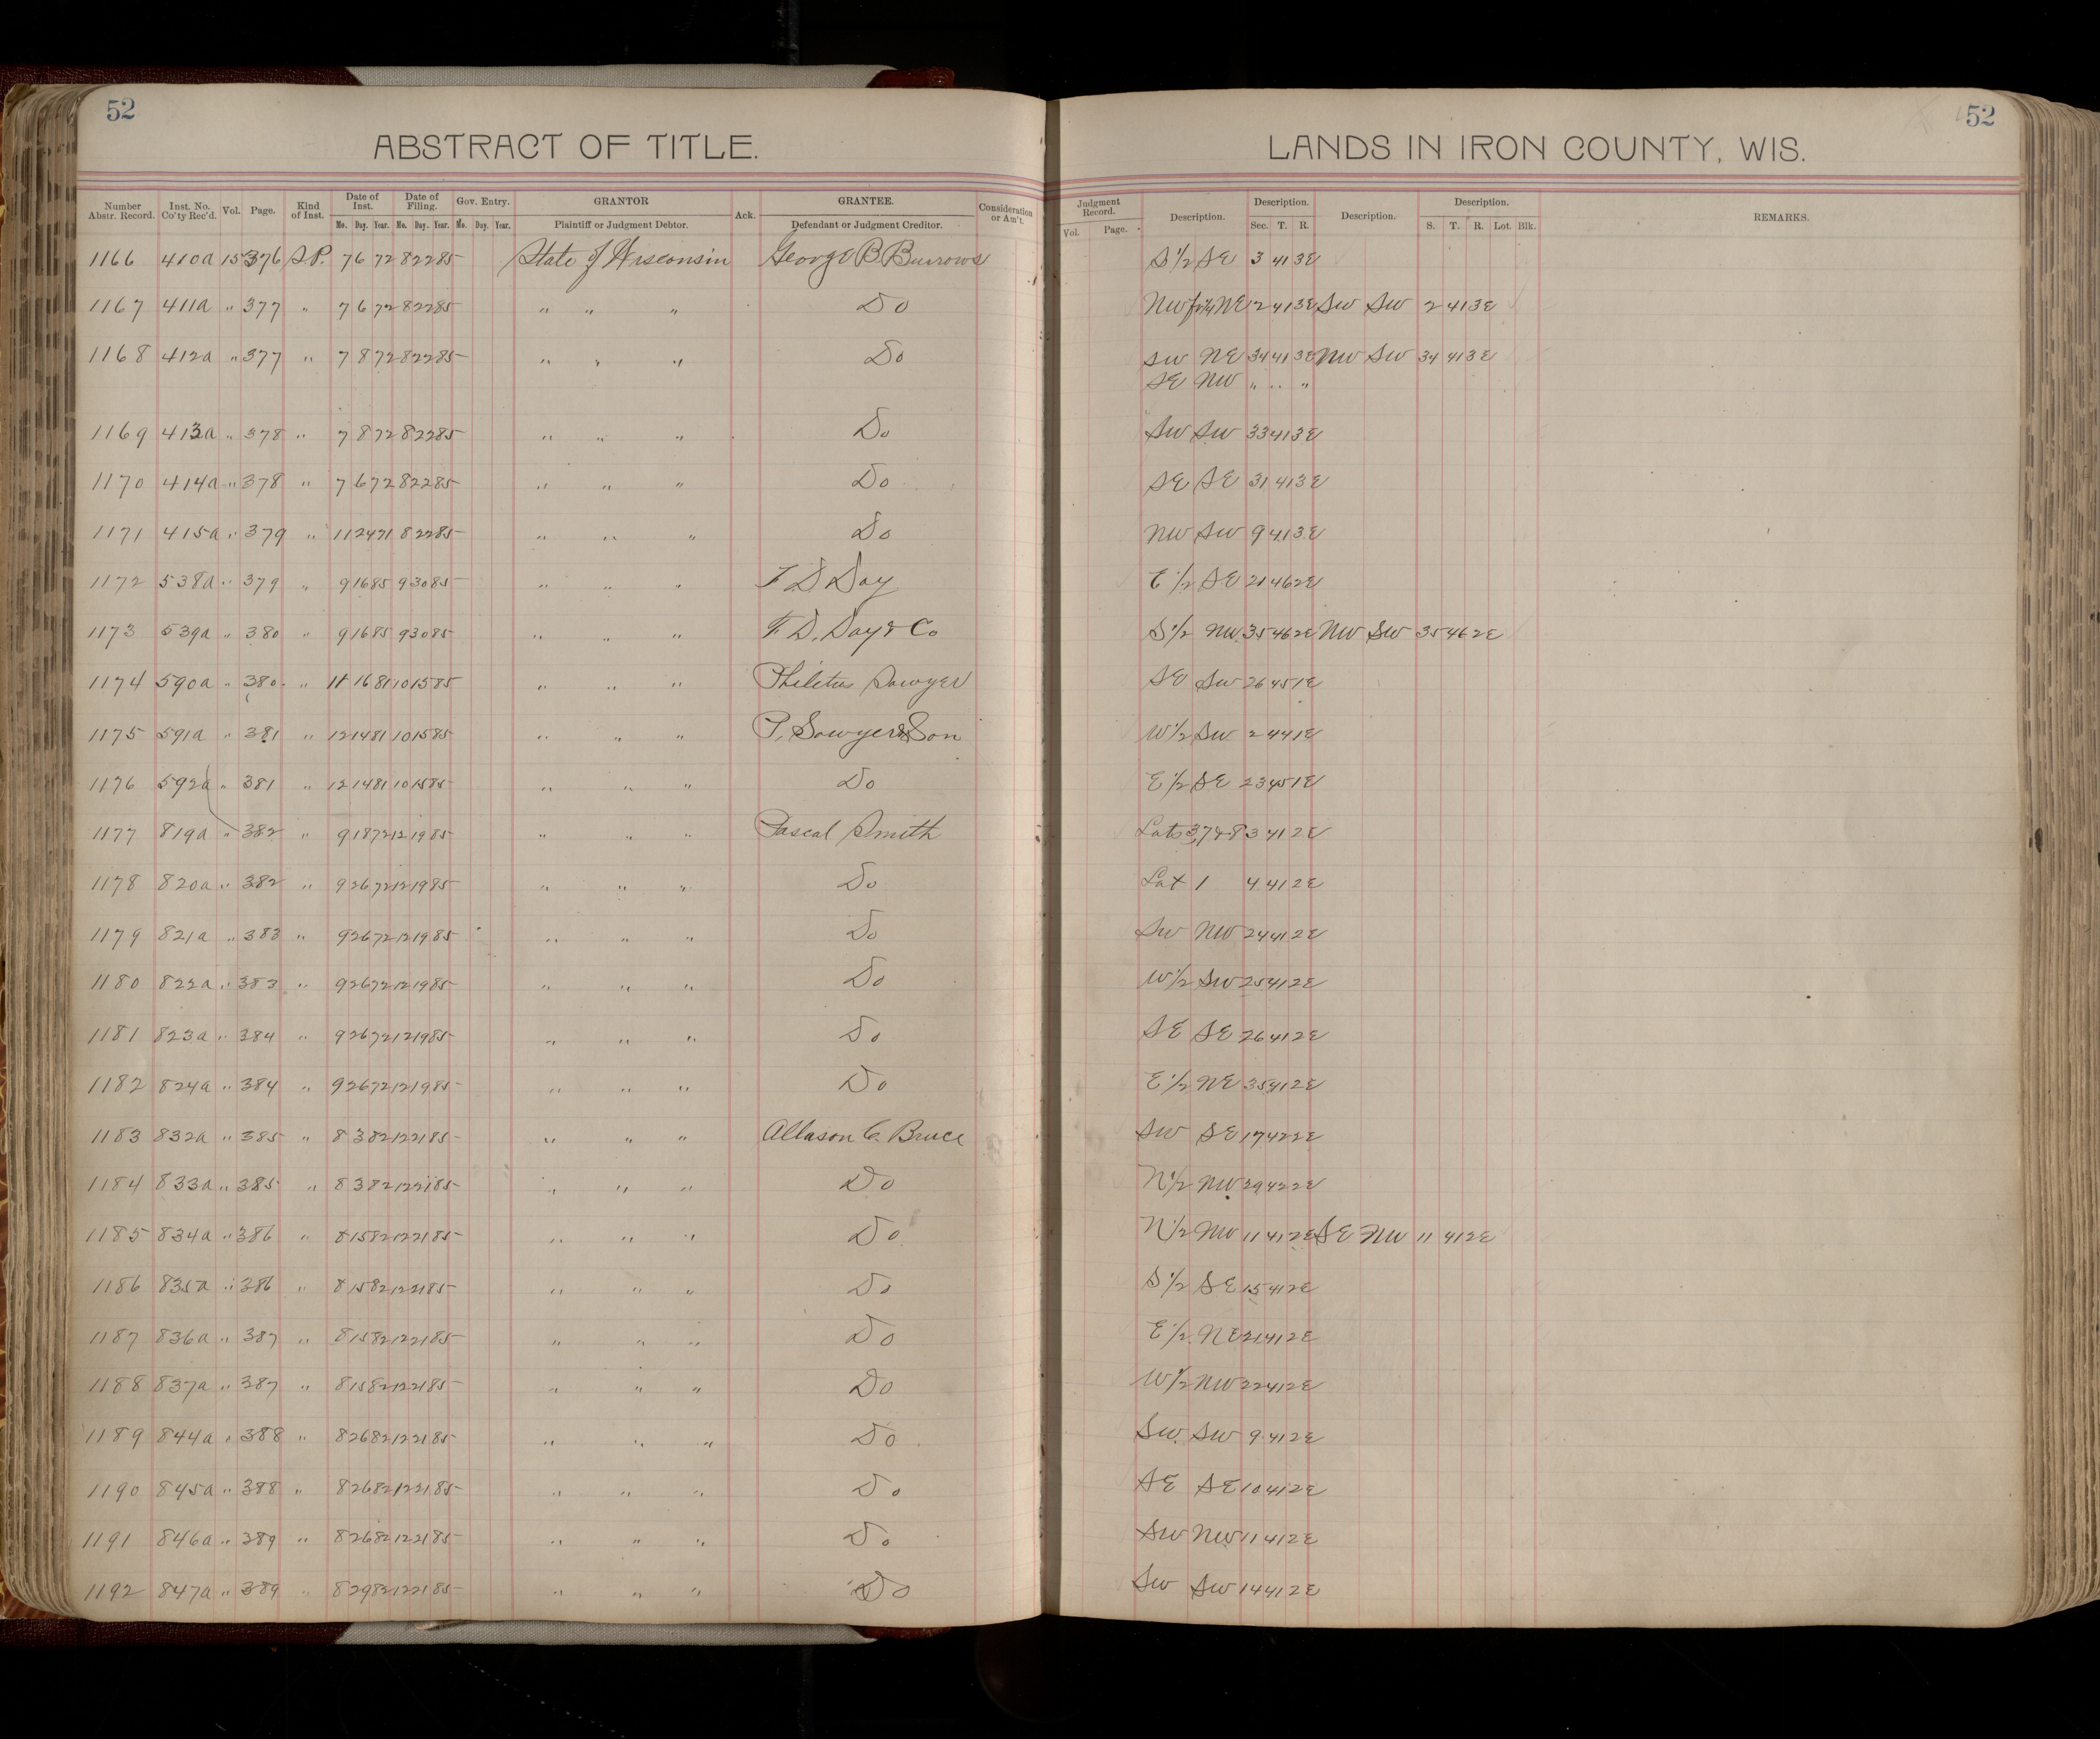 52
52
ABSTRACT OF TITLE.
LANDS IN IRON COUNTY, WIS.
Number Abstr. Record. Inst. No. Co'ty Rec'd. Vol. Page. Kind of Inst. Date of Inst. Mo. Day. Year. Date of Filing. Mo. Day. Year. Gov. Entry. Mo. Day. Year. GRANTOR Plaintiff or Judgment Debtor. Ack. GRANTEE. Defendant or Judgment Creditor. Consideration or Am't. Judgment Record. Vol. Page. Description. Description. Sec. T. R. Description. Description. S. T. R. Lot. Blk. REMARKS.
1166 410a 15 376 S.P. 7 6 72 8 22 85 State of Wisconsin George B. Burrows S 1/2 SE 3 41 3E
1167 411a " 377 " 7 6 72 8 22 85 " " " Do NW frl 1/4 NE 2 41 3E SW SW 2 41 3E
1168 412a " 377 " 7 8 72 8 22 85 " " " Do SW NE 34 41 3E NW SW 34 41 3E
SE NW " " "
1169 413a " 378 " 7 8 72 8 22 85 " " " Do SW SW 33 41 3E
1170 414a " 378 " 7 6 72 8 22 85 " " " Do SE SE 31 41 3E
1171 415a " 379 " 11 24 71 8 22 85 " " " Do NW SW 9 41 3E
1172 538a " 379 " 9 16 85 9 30 85 " " " F. D. Day E 1/2 SE 21 46 2E
1173 539a " 380 " 9 16 85 9 30 85 " " " F. D. Day & Co S 1/2 NW 35 46 2E NW SW 35 46 2E
1174 590a " 380 " 11 16 81 10 15 85 " " " Philetus Sawyer SE SW 26 45 1E
1175 591a " 381 " 12 14 81 10 15 85 " " " P. Sawyer & Son W 1/2 SW 2 44 1E
1176 592a " 381 " 12 14 81 10 15 85 " " " Do E 1/2 SE 23 45 1E
1177 819a " 382 " 9 18 72 12 19 85 " " " Pascal Smith Lots 3, 7 & 8 3 41 2E
1178 820a " 382 " 9 26 72 12 19 85 " " " Do Lot 1 4 41 2E
1179 821a " 383 " 9 26 72 12 19 85 " " " Do SW NW 24 41 2E
1180 822a " 383 " 9 26 72 12 19 85 " " " Do W 1/2 SW 25 41 2E
1181 823a " 384 " 9 26 72 12 19 85 " " " Do SE SE 26 41 2E
1182 824a " 384 " 9 26 72 12 19 85 " " " Do E 1/2 NE 35 41 2E
1183 832a " 385 " 8 3 82 12 21 85 " " " Allason C. Bruce SW SE 17 42 2E
1184 833a " 385 " 8 3 82 12 21 85 " " " Do N 1/2 NW 29 42 2E
1185 834a " 386 " 8 15 82 12 21 85 " " " Do N 1/2 NW 11 41 2E SE NW 11 41 2E
1186 835a " 386 " 8 15 82 12 21 85 " " " Do S 1/2 SE 15 41 2E
1187 836a " 387 " 8 15 82 12 21 85 " " " Do E 1/2 NE 21 41 2E
1188 837a " 387 " 8 15 82 12 21 85 " " " Do W 1/2 NW 22 41 2E
1189 844a " 388 " 8 26 82 12 21 85 " " " Do SW SW 9 41 2E
1190 845a " 388 " 8 26 82 12 21 85 " " " Do SE SE 10 41 2E
1191 846a " 389 " 8 26 82 12 21 85 " " " Do SW NW 11 41 2E
1192 847a " 389 " 8 29 82 12 21 85 " " " Do SW SW 14 41 2E